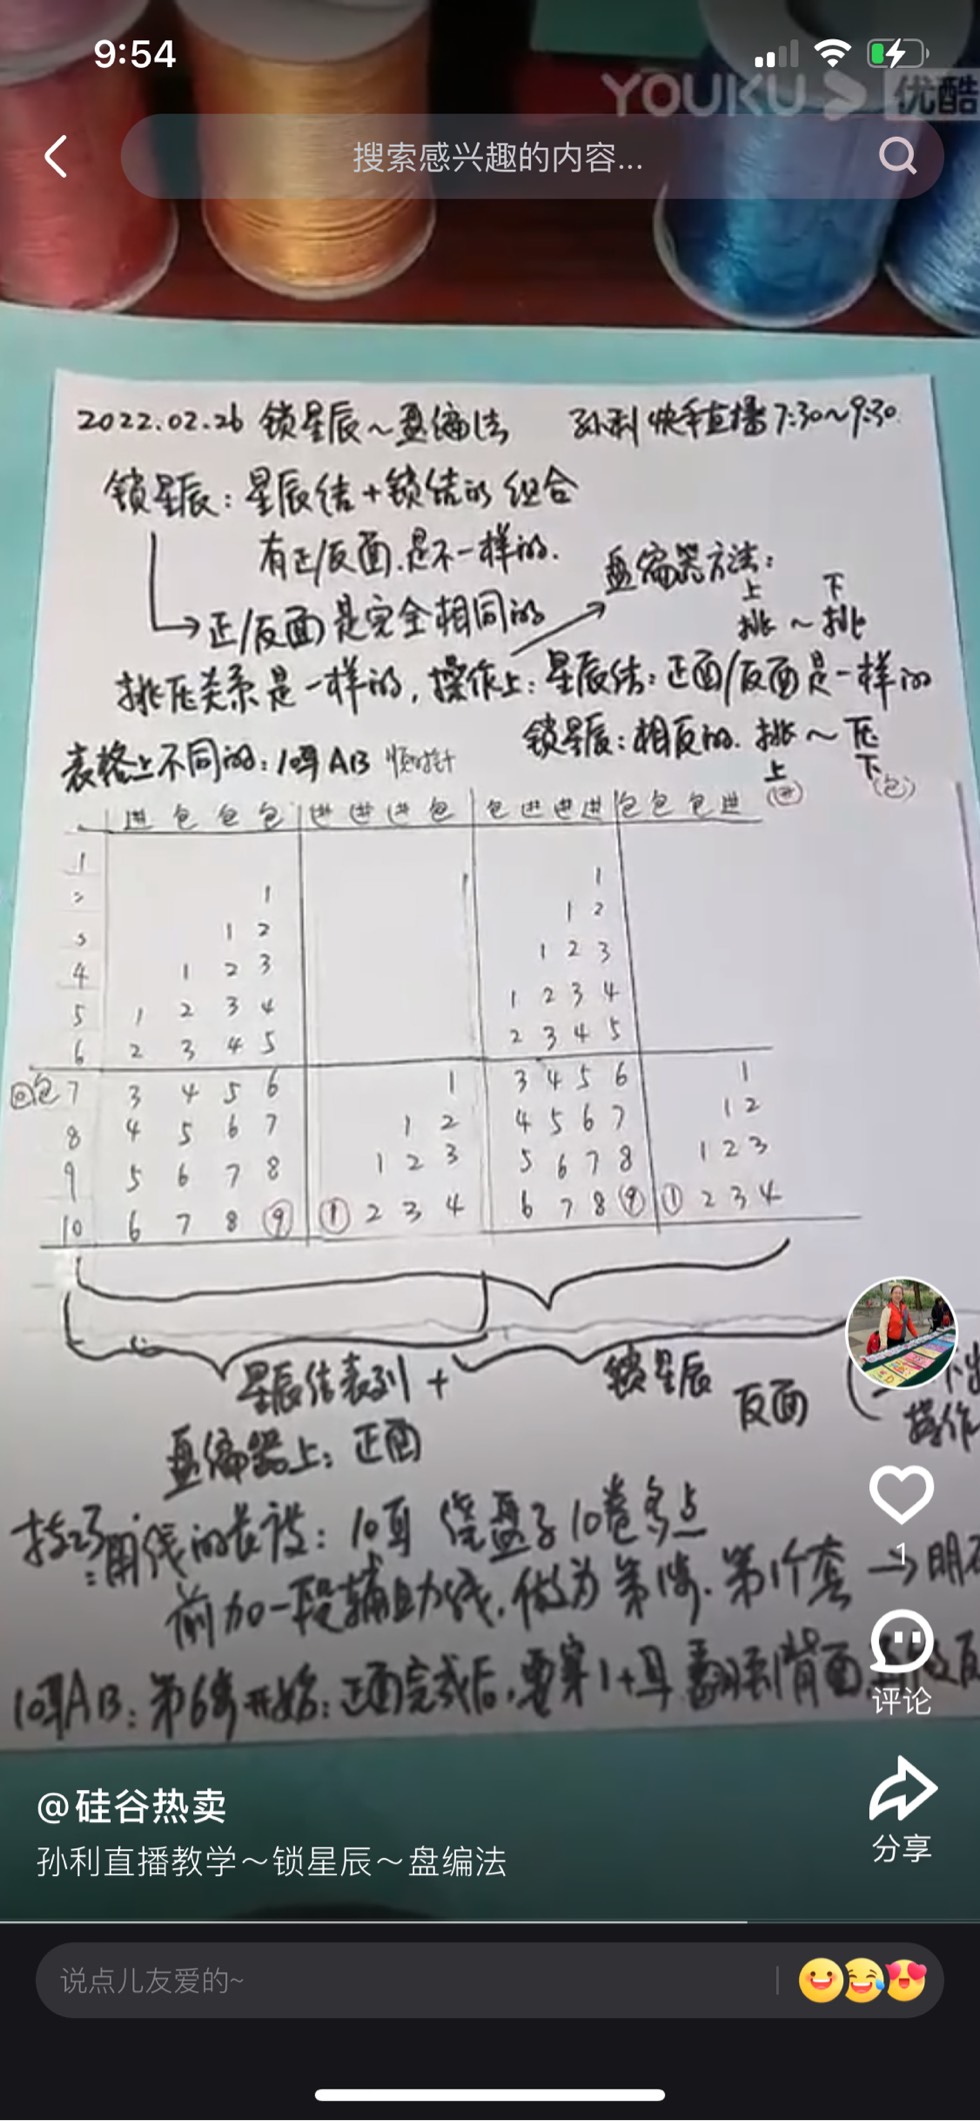 9:54
YOUKU 优酷
搜索感兴趣的内容...
2022.02.26 锁星辰~盘编法 孙利快手直播7:30~9:30
锁星辰:星辰结+锁结的组合
有正/反面.是不一样的.
盘编器方法:
上 下
挑~挑
正/反面是完全相同的
挑压关系是一样的,操作上:星辰结:正面/反面是一样的
锁星辰:相反的.挑~压
上 下
(进) (包)
表格上不同的:10耳AB 顺时针
进 包 包 包 进 进 进 包 包 进 进 进 包 包 包 进
1 1
2 1 1 2
3 1 2 1 2 3
4 1 2 3 1 2 3 4
5 1 2 3 4 2 3 4 5
6 2 3 4 5
回包 7 3 4 5 6 1 3 4 5 6 1
8 4 5 6 7 1 2 4 5 6 7 1 2
9 5 6 7 8 1 2 3 5 6 7 8 1 2 3
10 6 7 8 9 1 2 3 4 6 7 8 9 1 2 3 4
星辰结表列 + 锁星辰
盘编器上:正面 反面
操作
技巧:用线的长度:10耳 绕盘子10卷多点
前加一段辅助线,做为第1步.第1个套→明
10耳AB:第6步开始:正面完成后,要穿1+耳翻到背面
1
评论
分享
@硅谷热卖
孙利直播教学~锁星辰~盘编法
说点儿友爱的~